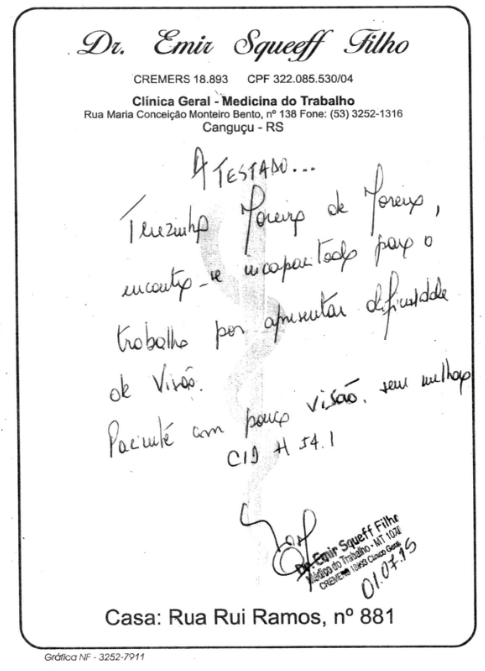 Dr. Emir Squeeff Filho
CREMERS 18.893 CPF 322.085.530/04
Clínica Geral - Medicina do Trabalho
Rua Maria Conceição Monteiro Bento, nº 138 Fone: (53) 3252-1316
Canguçu - RS
ATESTADO...
Terezinha Moreira de Moreira,
encontra-se incapacitada para o
trabalho por apresentar dificuldade
de Visão.
Paciente com pouca visão, sem melhora
CID H 54.1
Dr. Emir Squeff Filho
Médico do Trabalho - MT
CREMERS Clínica Geral
01.07.15
Casa: Rua Rui Ramos, nº 881
Gráfica NF - 3252-7911